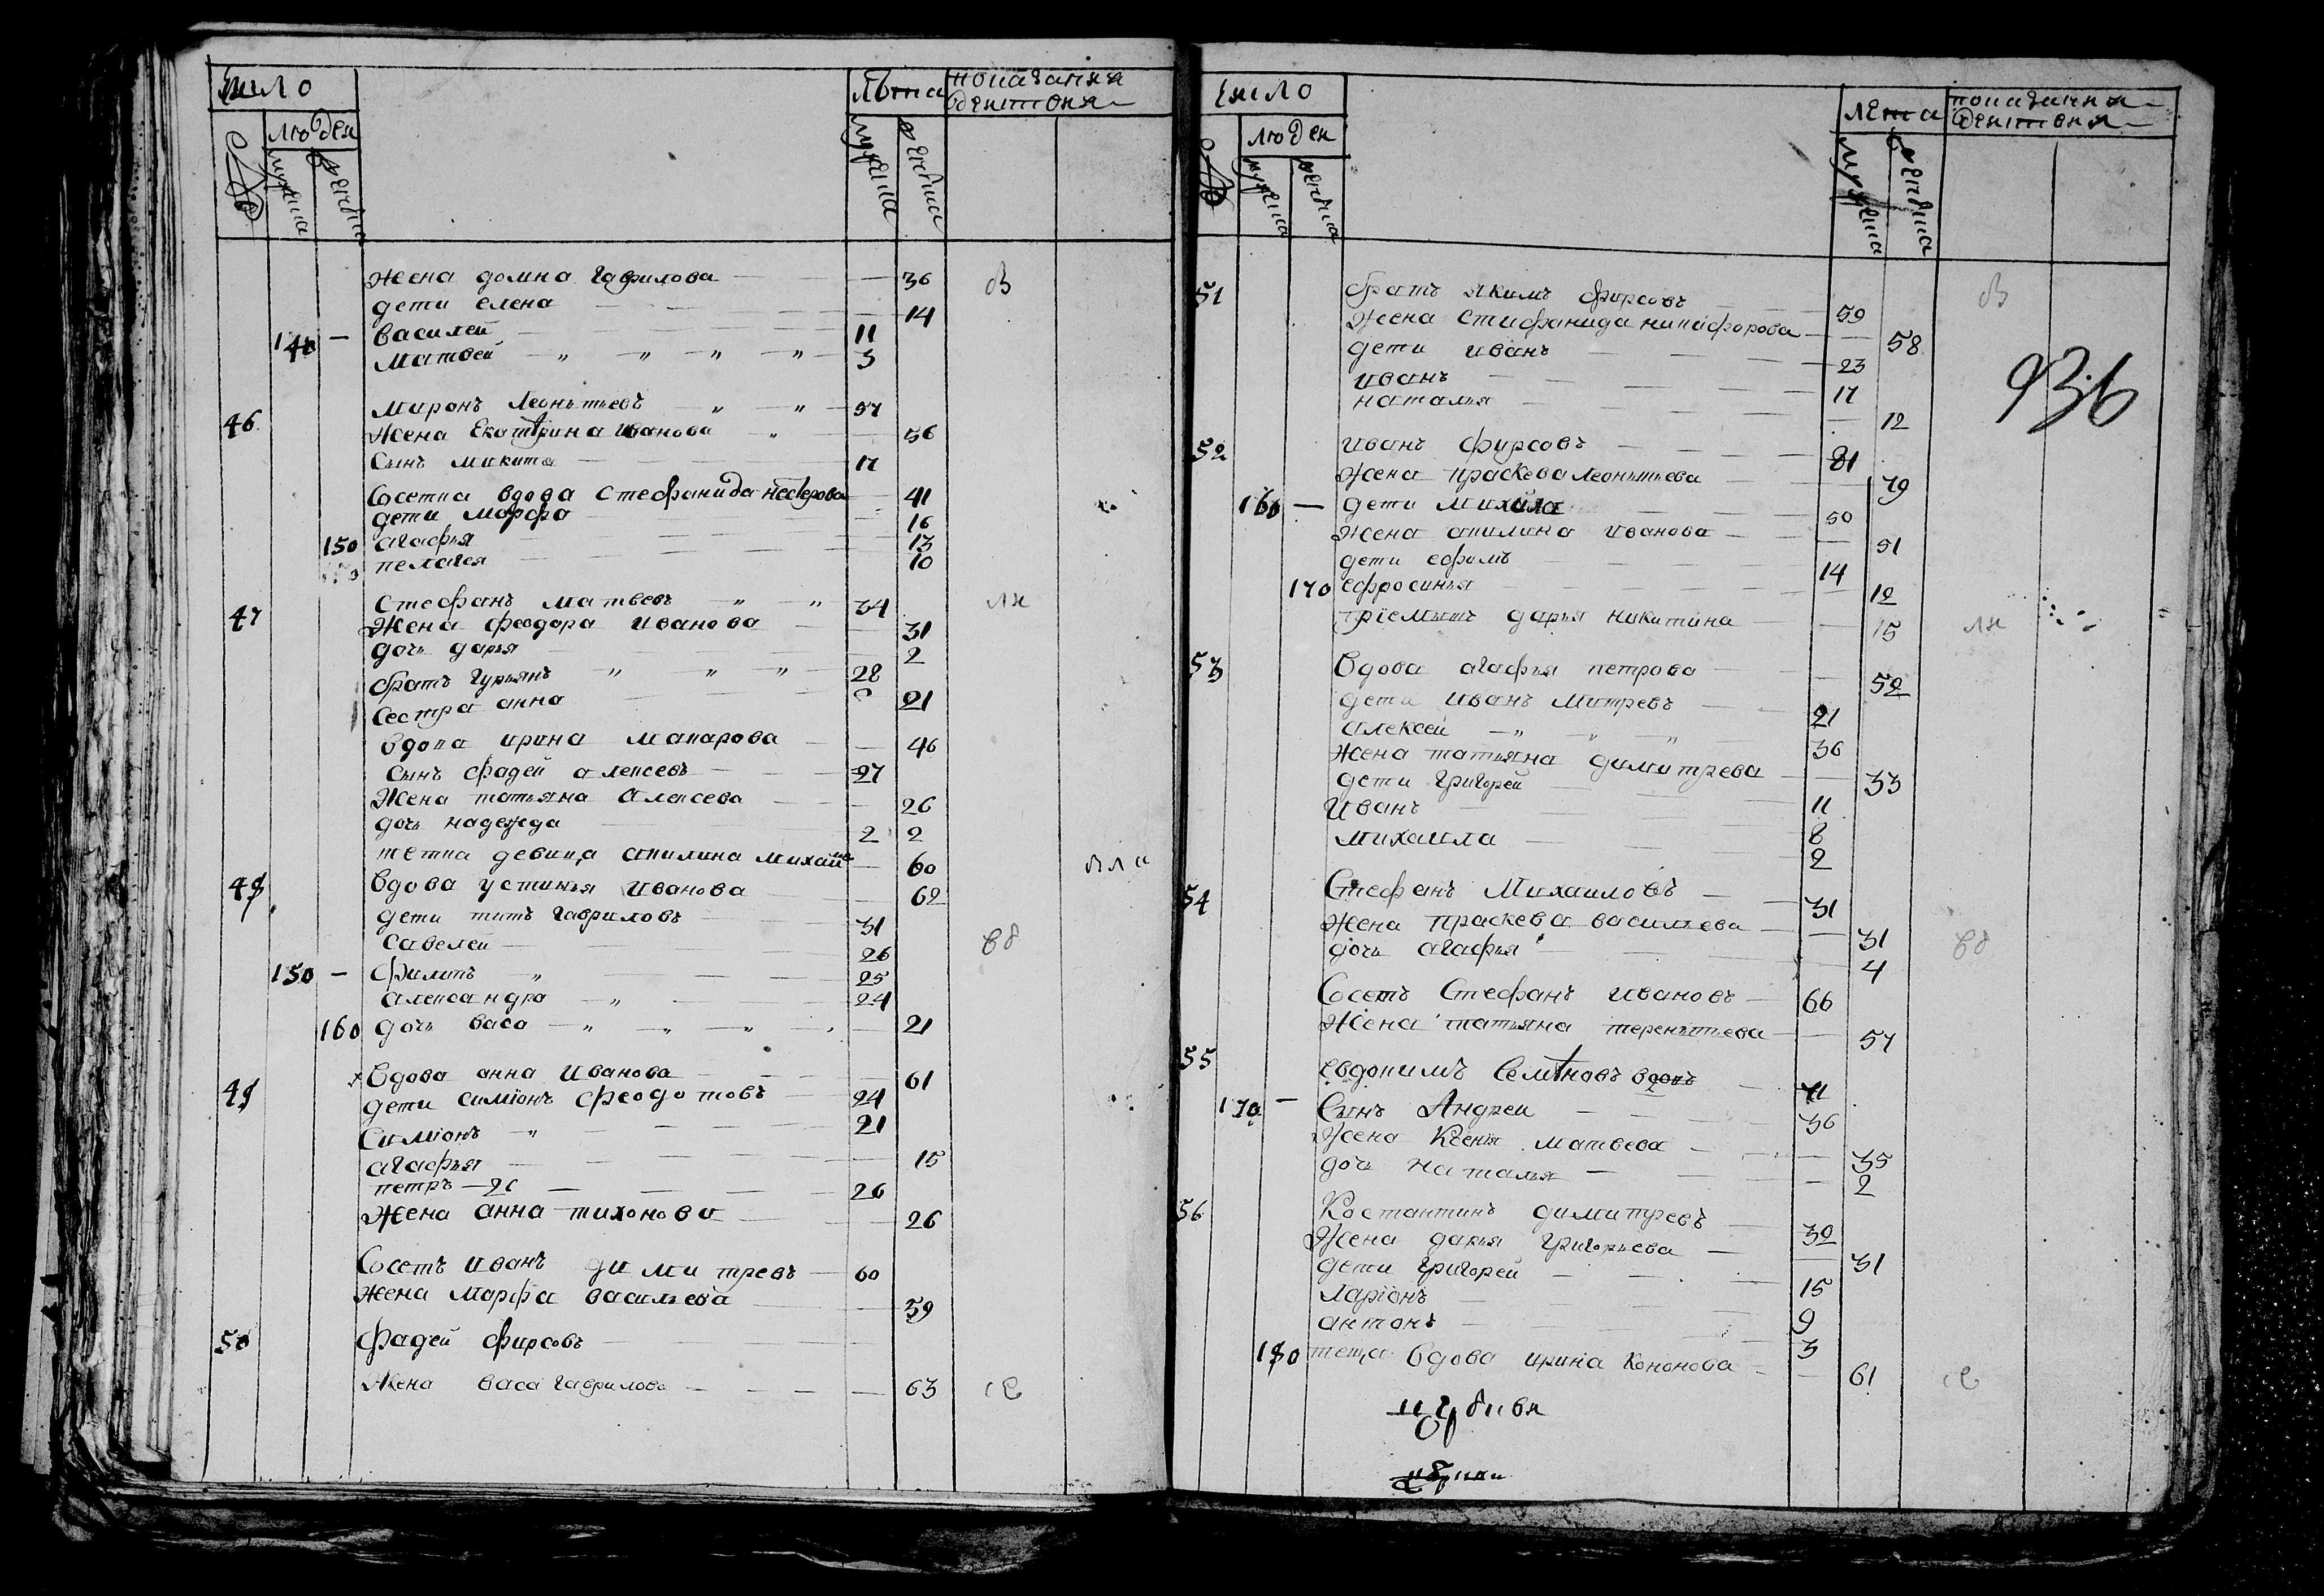 Число
лѣта показания действия
№ людей
мужеска женска
мужеска женска
жена домна гаврилова — — 36
дети елена — 14
140 — василей — 11
матвей — " — " — " — " — 3
46 миронъ леонътьевъ — " — " — 57
жена Екатерина иванова — " — 56
Сынъ микита — 17
Сосетка вдова стефанида нестерова — 41
дети марфа — 16
150 агафья — 13
пелагея — 10
47 Стефанъ матвеевъ — " — " 34
жена феодора иванова — 31
дочь дарья — 2
братъ гурьянъ " " " — 28
Сестра анна — 21
вдова ирина макарова — 46
сынъ фадей алексевъ — 27
жена татьяна алексева — 26
дочь надежда — 2 2
тетка девица акилина михайло — 60
48 Вдова устинья иванова — 62
дети титъ гавриловъ — 31
савелей — 26
150 — филипъ — " — 25
александра — " — 24
160 дочь васа — " — " — " — 21
49 Вдова анна иванова — 61
дети симионъ феодотовъ — 24
Симионъ — " — 21
агафья — 15
петръ — 26 — 26
жена анна тихонова — 26
Сосетъ иванъ димитревъ — 60
жена марфа васильева — 59
50 фадей фирсовъ —
жена васа гаврилова — 63
Число
лета показания действия
№ людей
мужеска женска
мужеска женска
936
51 братъ якимъ фирсовъ — 59
жена стифанида никифорова — 58
дети иванъ — 23
иванъ — 17
наталья — 12
52 иванъ фирсовъ — 81
жена праскева леонътьева — 79
160 — дети михайла — 50
жена акилина иванова — 51
дети ефимъ — 14
170 ефросинья — 12
приемышъ дарья никитина — 15
53 Вдова агафья петрова — 52
дети иванъ митревъ — 21
алексей — " — " — " 36
жена татьяна димитрева — 33
дети григорей — 11
иванъ — 8
михаила — 2
54 Стефанъ Михаиловъ — 31
жена праскева васильева — 31
дочь агафья — 4
Сосетъ Стефанъ ивановъ — 66
жена татьяна теренътьева — 57
55 евдокимъ Семеновъ вдовъ — 71
170 — Сынъ Андреи — 36
жена Ксения матвева — 35
дочь наталья — 2
56 Костантинъ димитревъ — 32
жена дарья григорьева — 31
дети григорей — 15
ларионъ — 9
антонъ — 3
180 теща вдова ирина кононова — 61